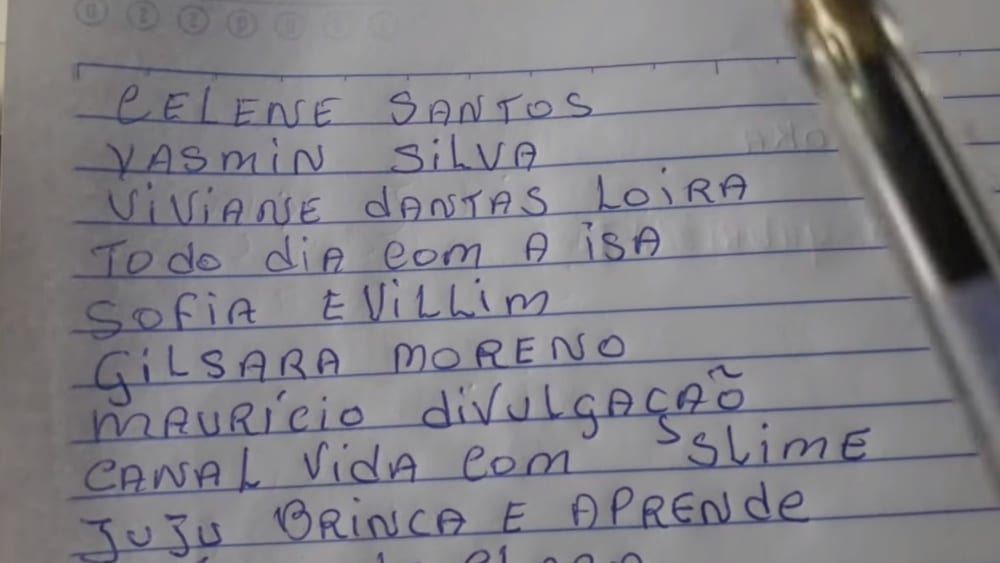 CELENE SANTOS
YASMIN SILVA
ViViANE dANTAS LOiRA
Todo diA com A iSA
SOFIA E ViLLiM
GiLSARA MORENO
MAURÍCIO diVULGAÇAÕ
CANAL VidA com SLIME
JUJU BRINCA E APRENde